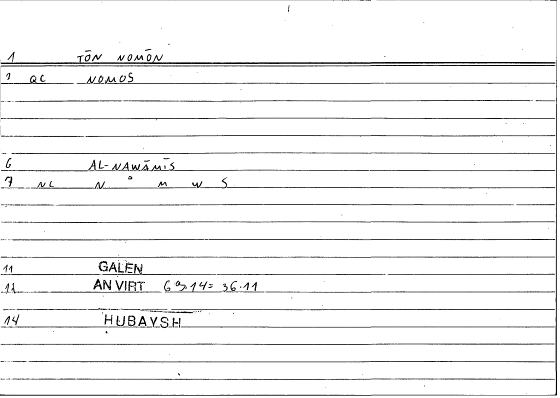 1 TŌN NOMŌN
2 QC NOMOS
6 AL-NAWĀMĪS
7 NL N ° M W S
11 GALEN
12 AN VIRT 6 14= 36.11
14 HUBAYSH